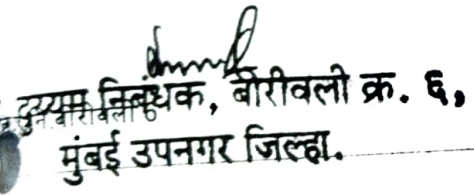 दुय्यम निबंधक, बोरीवली क्र. ६,
मुंबई उपनगर जिल्हा.